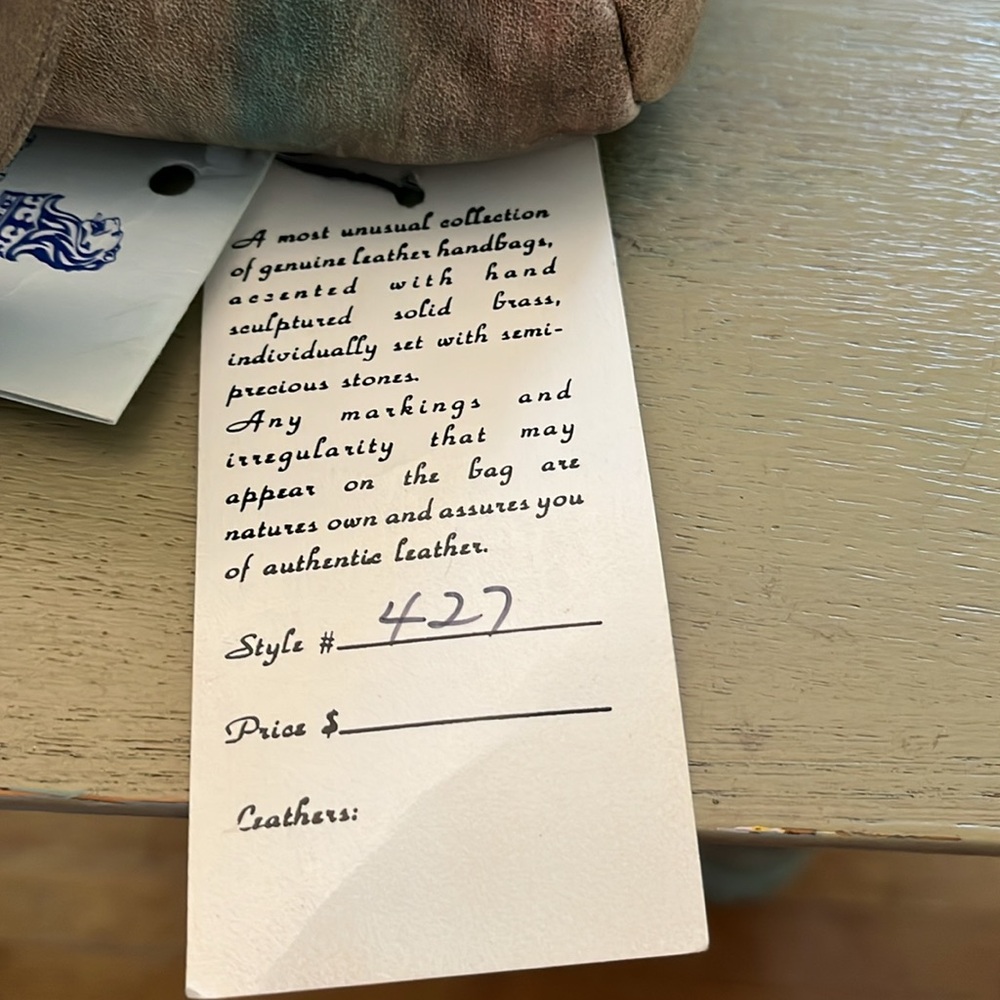 A most unusual collection
of genuine leather handbags,
accented with hand
sculptured solid brass,
individually set with semi-
precious stones.
Any markings and
irregularity that may
appear on the bag are
natures own and assures you
of authentic leather.
Style # 427
Price $
Leathers: